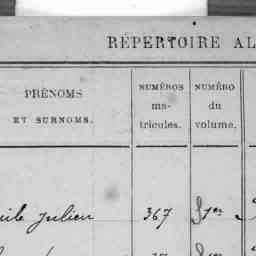 RÉPERTOIRE AL
PRÉNOMS
ET SURNOMS.
NUMÉROS
ma-
tricules.
NUMÉRO
du
volume.
Julien 367 1er